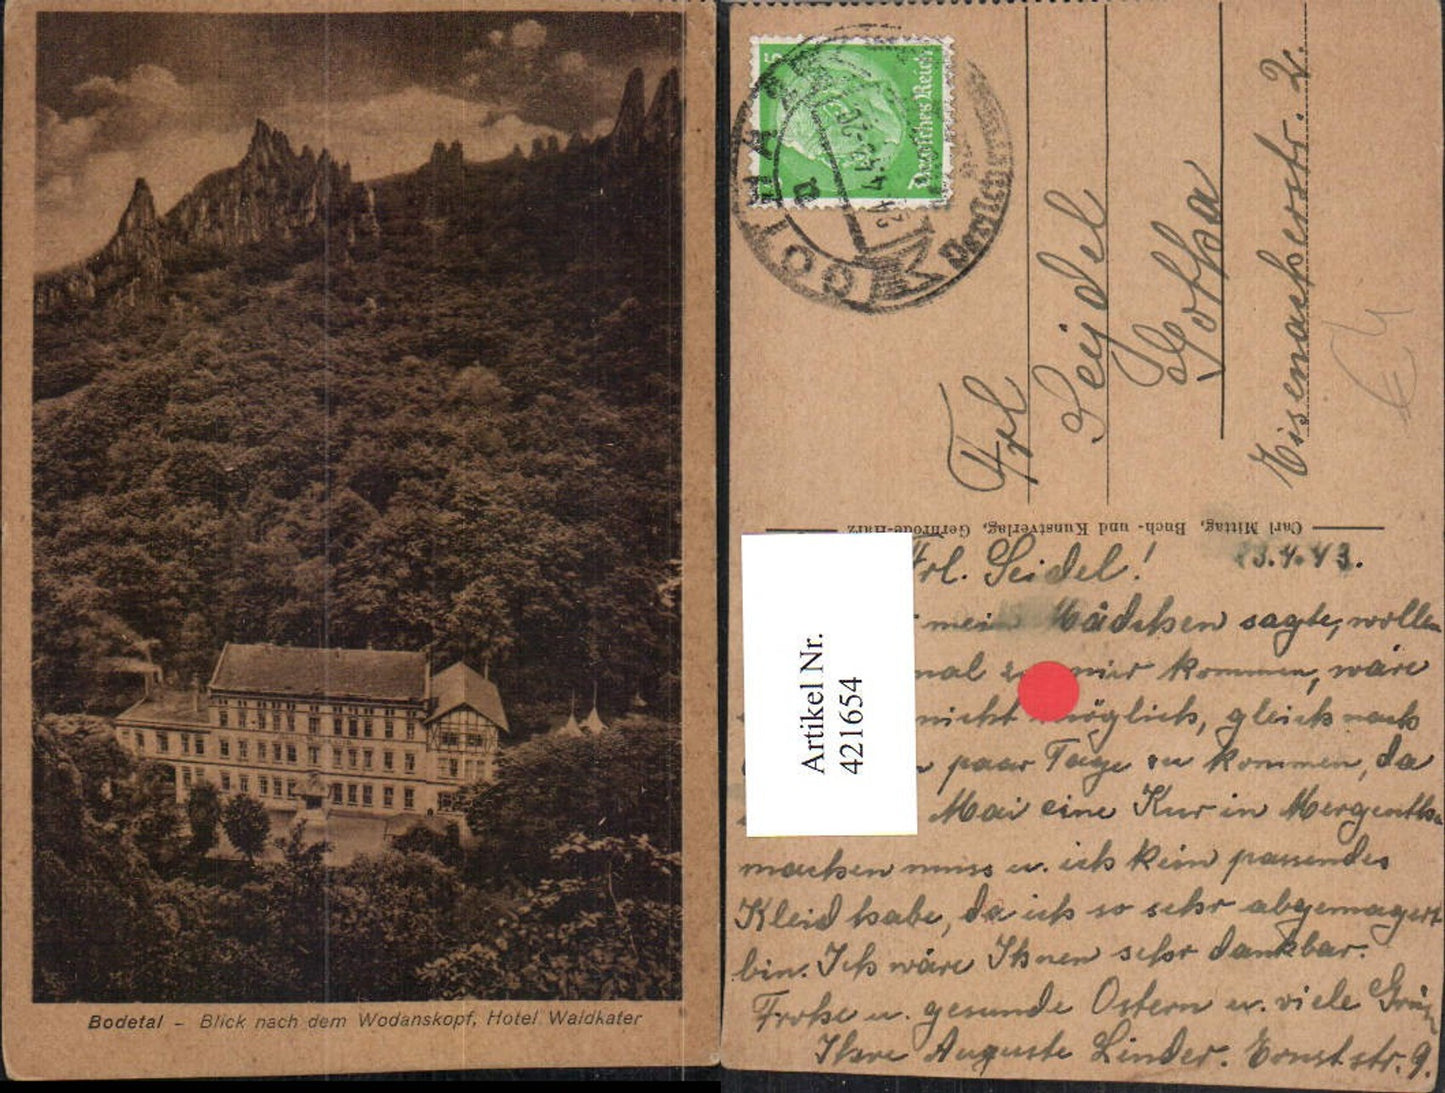 Bodetal - Blick nach dem Wodanskopf, Hotel Waldkater
5
Deutsches Reich
GOTHA
a
Frl
Seidel
Gotha
Eisenacherstr. 2.
Carl Mittag, Buch- und Kunstverlag, Gernrode-Harz
Artikel Nr.
421654
Frl. Seidel! 23.4.43.
mein Mädchen sagte, wollen
mal zu mir kommen, wäre
nicht möglich, gleich nach
paar Tage zu kommen, da
Mai eine Kur in Mergenth
machen muss u. ich kein passendes
Kleid habe, da ich so sehr abgemagert
bin. Ich wäre Ihnen sehr dankbar.
Frohe u. gesunde Ostern u. viele Grüße
Ihre Auguste Linder. Ernststr. 9.